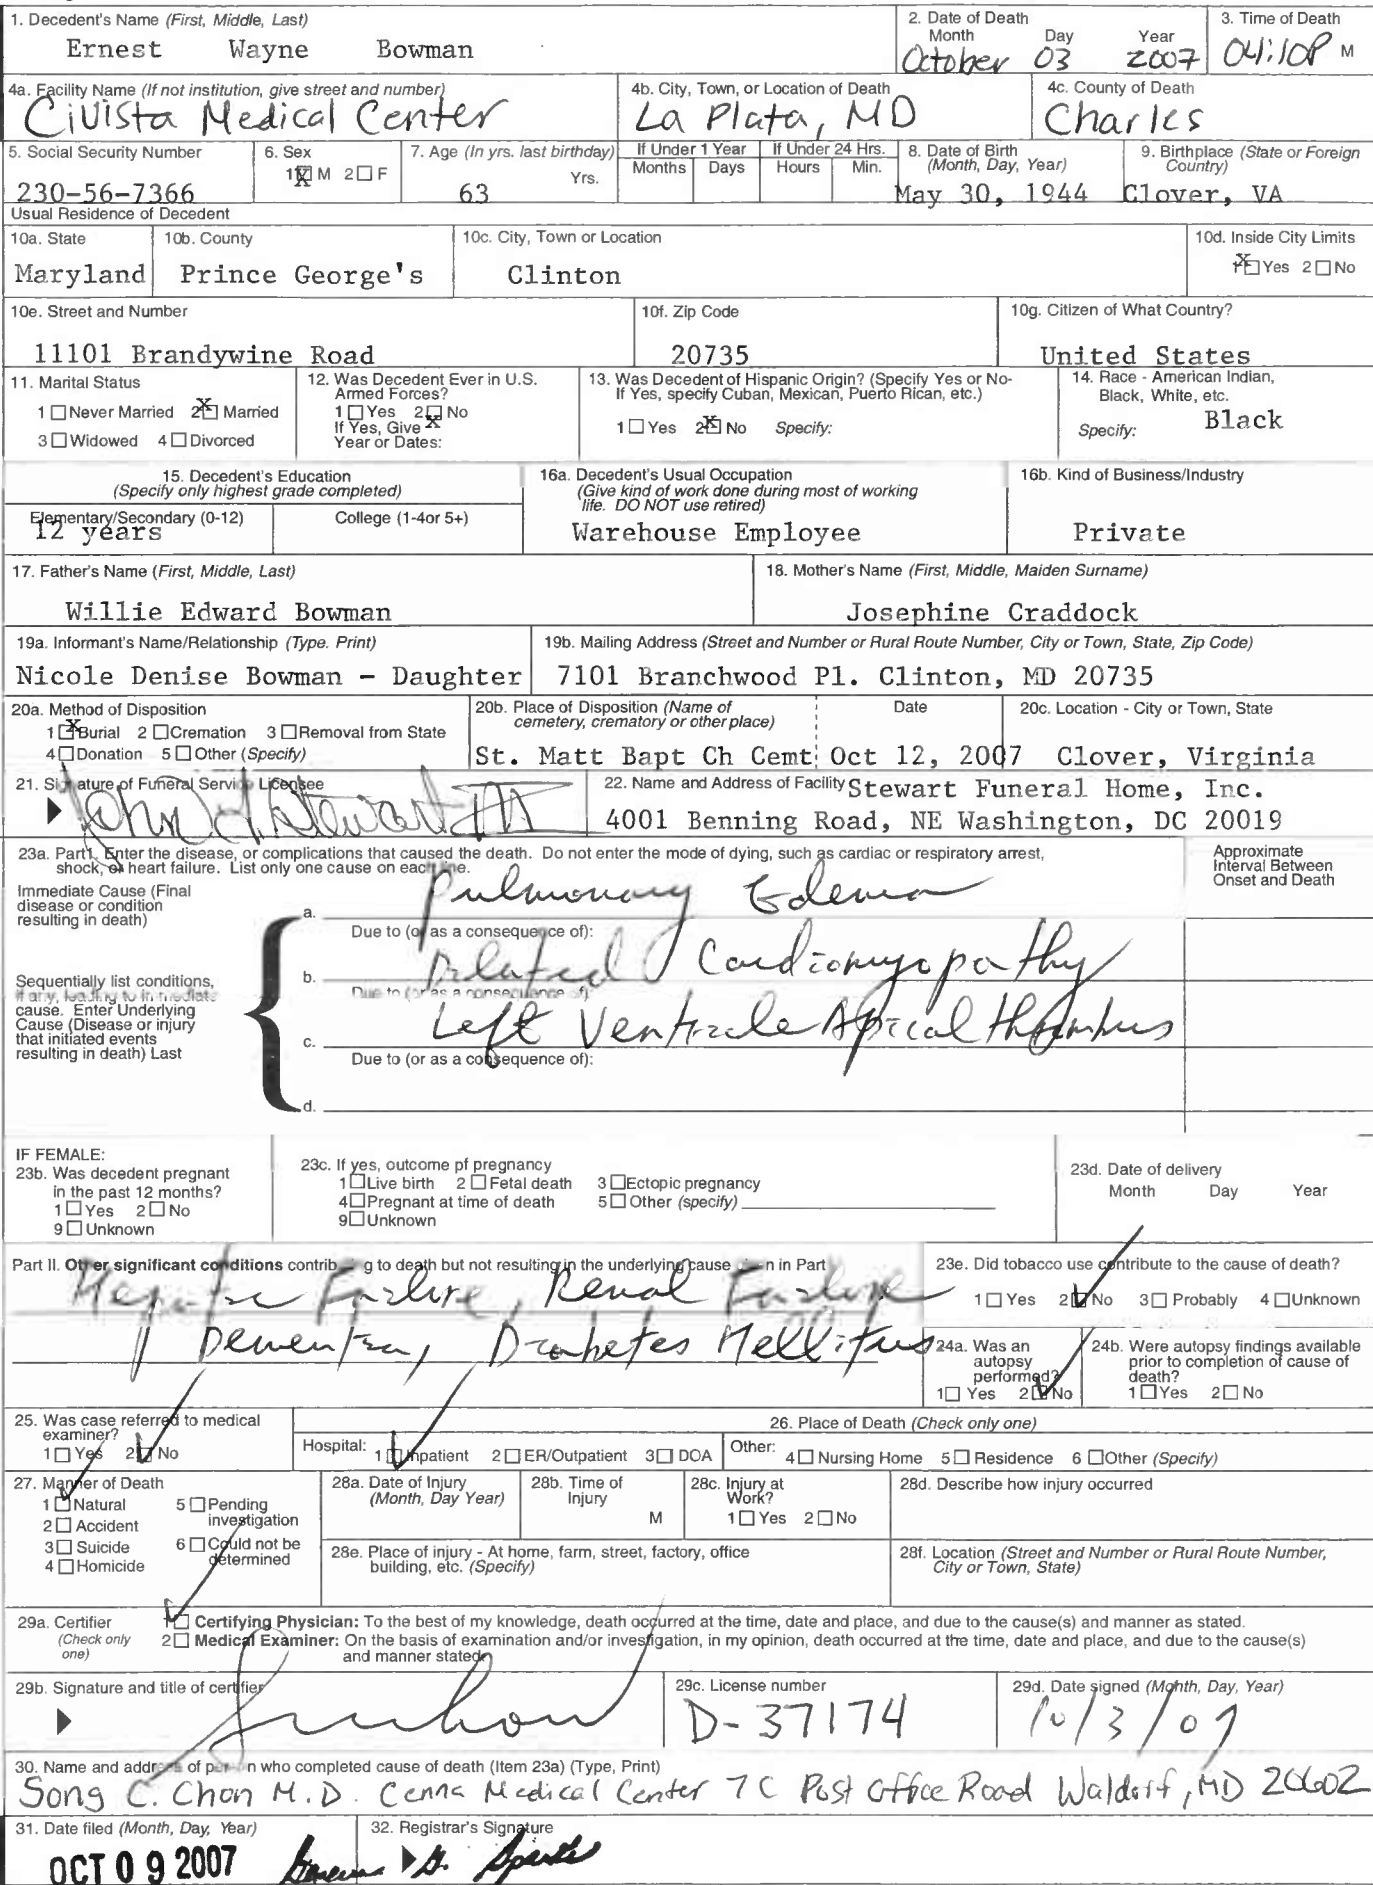 1. Decedent's Name (First, Middle, Last)
Ernest Wayne Bowman
2. Date of Death
Month Day Year
October 03 2007
3. Time of Death
04:10P M
4a. Facility Name (If not institution, give street and number)
Civista Medical Center
4b. City, Town, or Location of Death
La Plata, MD
4c. County of Death
Charles
5. Social Security Number
230-56-7366
6. Sex
1☒ M 2☐ F
7. Age (In yrs. last birthday)
63 Yrs.
If Under 1 Year
Months Days
If Under 24 Hrs.
Hours Min.
8. Date of Birth
(Month, Day, Year)
May 30, 1944
9. Birthplace (State or Foreign
Country)
Clover, VA
Usual Residence of Decedent
10a. State
Maryland
10b. County
Prince George's
10c. City, Town or Location
Clinton
10d. Inside City Limits
1☒ Yes 2☐ No
10e. Street and Number
11101 Brandywine Road
10f. Zip Code
20735
10g. Citizen of What Country?
United States
11. Marital Status
1☐ Never Married 2☒ Married
3☐ Widowed 4☐ Divorced
12. Was Decedent Ever in U.S.
Armed Forces?
1☐ Yes 2☒ No
If Yes, Give
Year or Dates:
13. Was Decedent of Hispanic Origin? (Specify Yes or No-
If Yes, specify Cuban, Mexican, Puerto Rican, etc.)
1☐ Yes 2☒ No Specify:
14. Race - American Indian,
Black, White, etc.
Specify: Black
15. Decedent's Education
(Specify only highest grade completed)
Elementary/Secondary (0-12)
12 years
College (1-4or 5+)
16a. Decedent's Usual Occupation
(Give kind of work done during most of working
life. DO NOT use retired)
Warehouse Employee
16b. Kind of Business/Industry
Private
17. Father's Name (First, Middle, Last)
Willie Edward Bowman
18. Mother's Name (First, Middle, Maiden Surname)
Josephine Craddock
19a. Informant's Name/Relationship (Type. Print)
Nicole Denise Bowman - Daughter
19b. Mailing Address (Street and Number or Rural Route Number, City or Town, State, Zip Code)
7101 Branchwood Pl. Clinton, MD 20735
20a. Method of Disposition
1☒ Burial 2☐ Cremation 3☐ Removal from State
4☐ Donation 5☐ Other (Specify)
20b. Place of Disposition (Name of
cemetery, crematory or other place)
St. Matt Bapt Ch Cemt
Date
Oct 12, 2007
20c. Location - City or Town, State
Clover, Virginia
21. Signature of Funeral Service Licensee
John H. Stewart III
22. Name and Address of Facility Stewart Funeral Home, Inc.
4001 Benning Road, NE Washington, DC 20019
23a. Part I. Enter the disease, or complications that caused the death. Do not enter the mode of dying, such as cardiac or respiratory arrest,
shock, or heart failure. List only one cause on each line.
Approximate
Interval Between
Onset and Death
Immediate Cause (Final
disease or condition
resulting in death)
a. Pulmonary Edema
Due to (or as a consequence of):
Sequentially list conditions,
if any, leading to immediate
cause. Enter Underlying
Cause (Disease or injury
that initiated events
resulting in death) Last
b. Dilated Cardiomyopathy
Due to (or as a consequence of):
c. Left Ventricle Apical thrombus
Due to (or as a consequence of):
d.
IF FEMALE:
23b. Was decedent pregnant
in the past 12 months?
1☐ Yes 2☐ No
9☐ Unknown
23c. If yes, outcome pf pregnancy
1☐ Live birth 2☐ Fetal death 3☐ Ectopic pregnancy
4☐ Pregnant at time of death 5☐ Other (specify)
9☐ Unknown
23d. Date of delivery
Month Day Year
Part II. Other significant conditions contrib g to death but not resulting in the underlying cause n in Part
Hepatic Failure, Renal Failure
Dementia, Diabetes Mellitus
23e. Did tobacco use contribute to the cause of death?
1☐ Yes 2☑ No 3☐ Probably 4☐ Unknown
24a. Was an
autopsy
performed?
1☐ Yes 2☑ No
24b. Were autopsy findings available
prior to completion of cause of
death?
1☐ Yes 2☐ No
25. Was case referred to medical
examiner?
1☐ Yes 2☑ No
26. Place of Death (Check only one)
Hospital: 1☑ Inpatient 2☐ ER/Outpatient 3☐ DOA
Other: 4☐ Nursing Home 5☐ Residence 6☐ Other (Specify)
27. Manner of Death
1☑ Natural 5☐ Pending
investigation
2☐ Accident
3☐ Suicide 6☐ Could not be
determined
4☐ Homicide
28a. Date of Injury
(Month, Day Year)
28b. Time of
Injury
M
28c. Injury at
Work?
1☐ Yes 2☐ No
28d. Describe how injury occurred
28e. Place of injury - At home, farm, street, factory, office
building, etc. (Specify)
28f. Location (Street and Number or Rural Route Number,
City or Town, State)
29a. Certifier
(Check only
one)
1☑ Certifying Physician: To the best of my knowledge, death occurred at the time, date and place, and due to the cause(s) and manner as stated.
2☐ Medical Examiner: On the basis of examination and/or investigation, in my opinion, death occurred at the time, date and place, and due to the cause(s)
and manner stated.
29b. Signature and title of certifier
29c. License number
D-37174
29d. Date signed (Month, Day, Year)
10/3/07
30. Name and address of person who completed cause of death (Item 23a) (Type, Print)
Song C. Chon M.D. Cenna Medical Center 7C Post Office Road Waldorf, MD 20602
31. Date filed (Month, Day, Year)
OCT 09 2007
32. Registrar's Signature